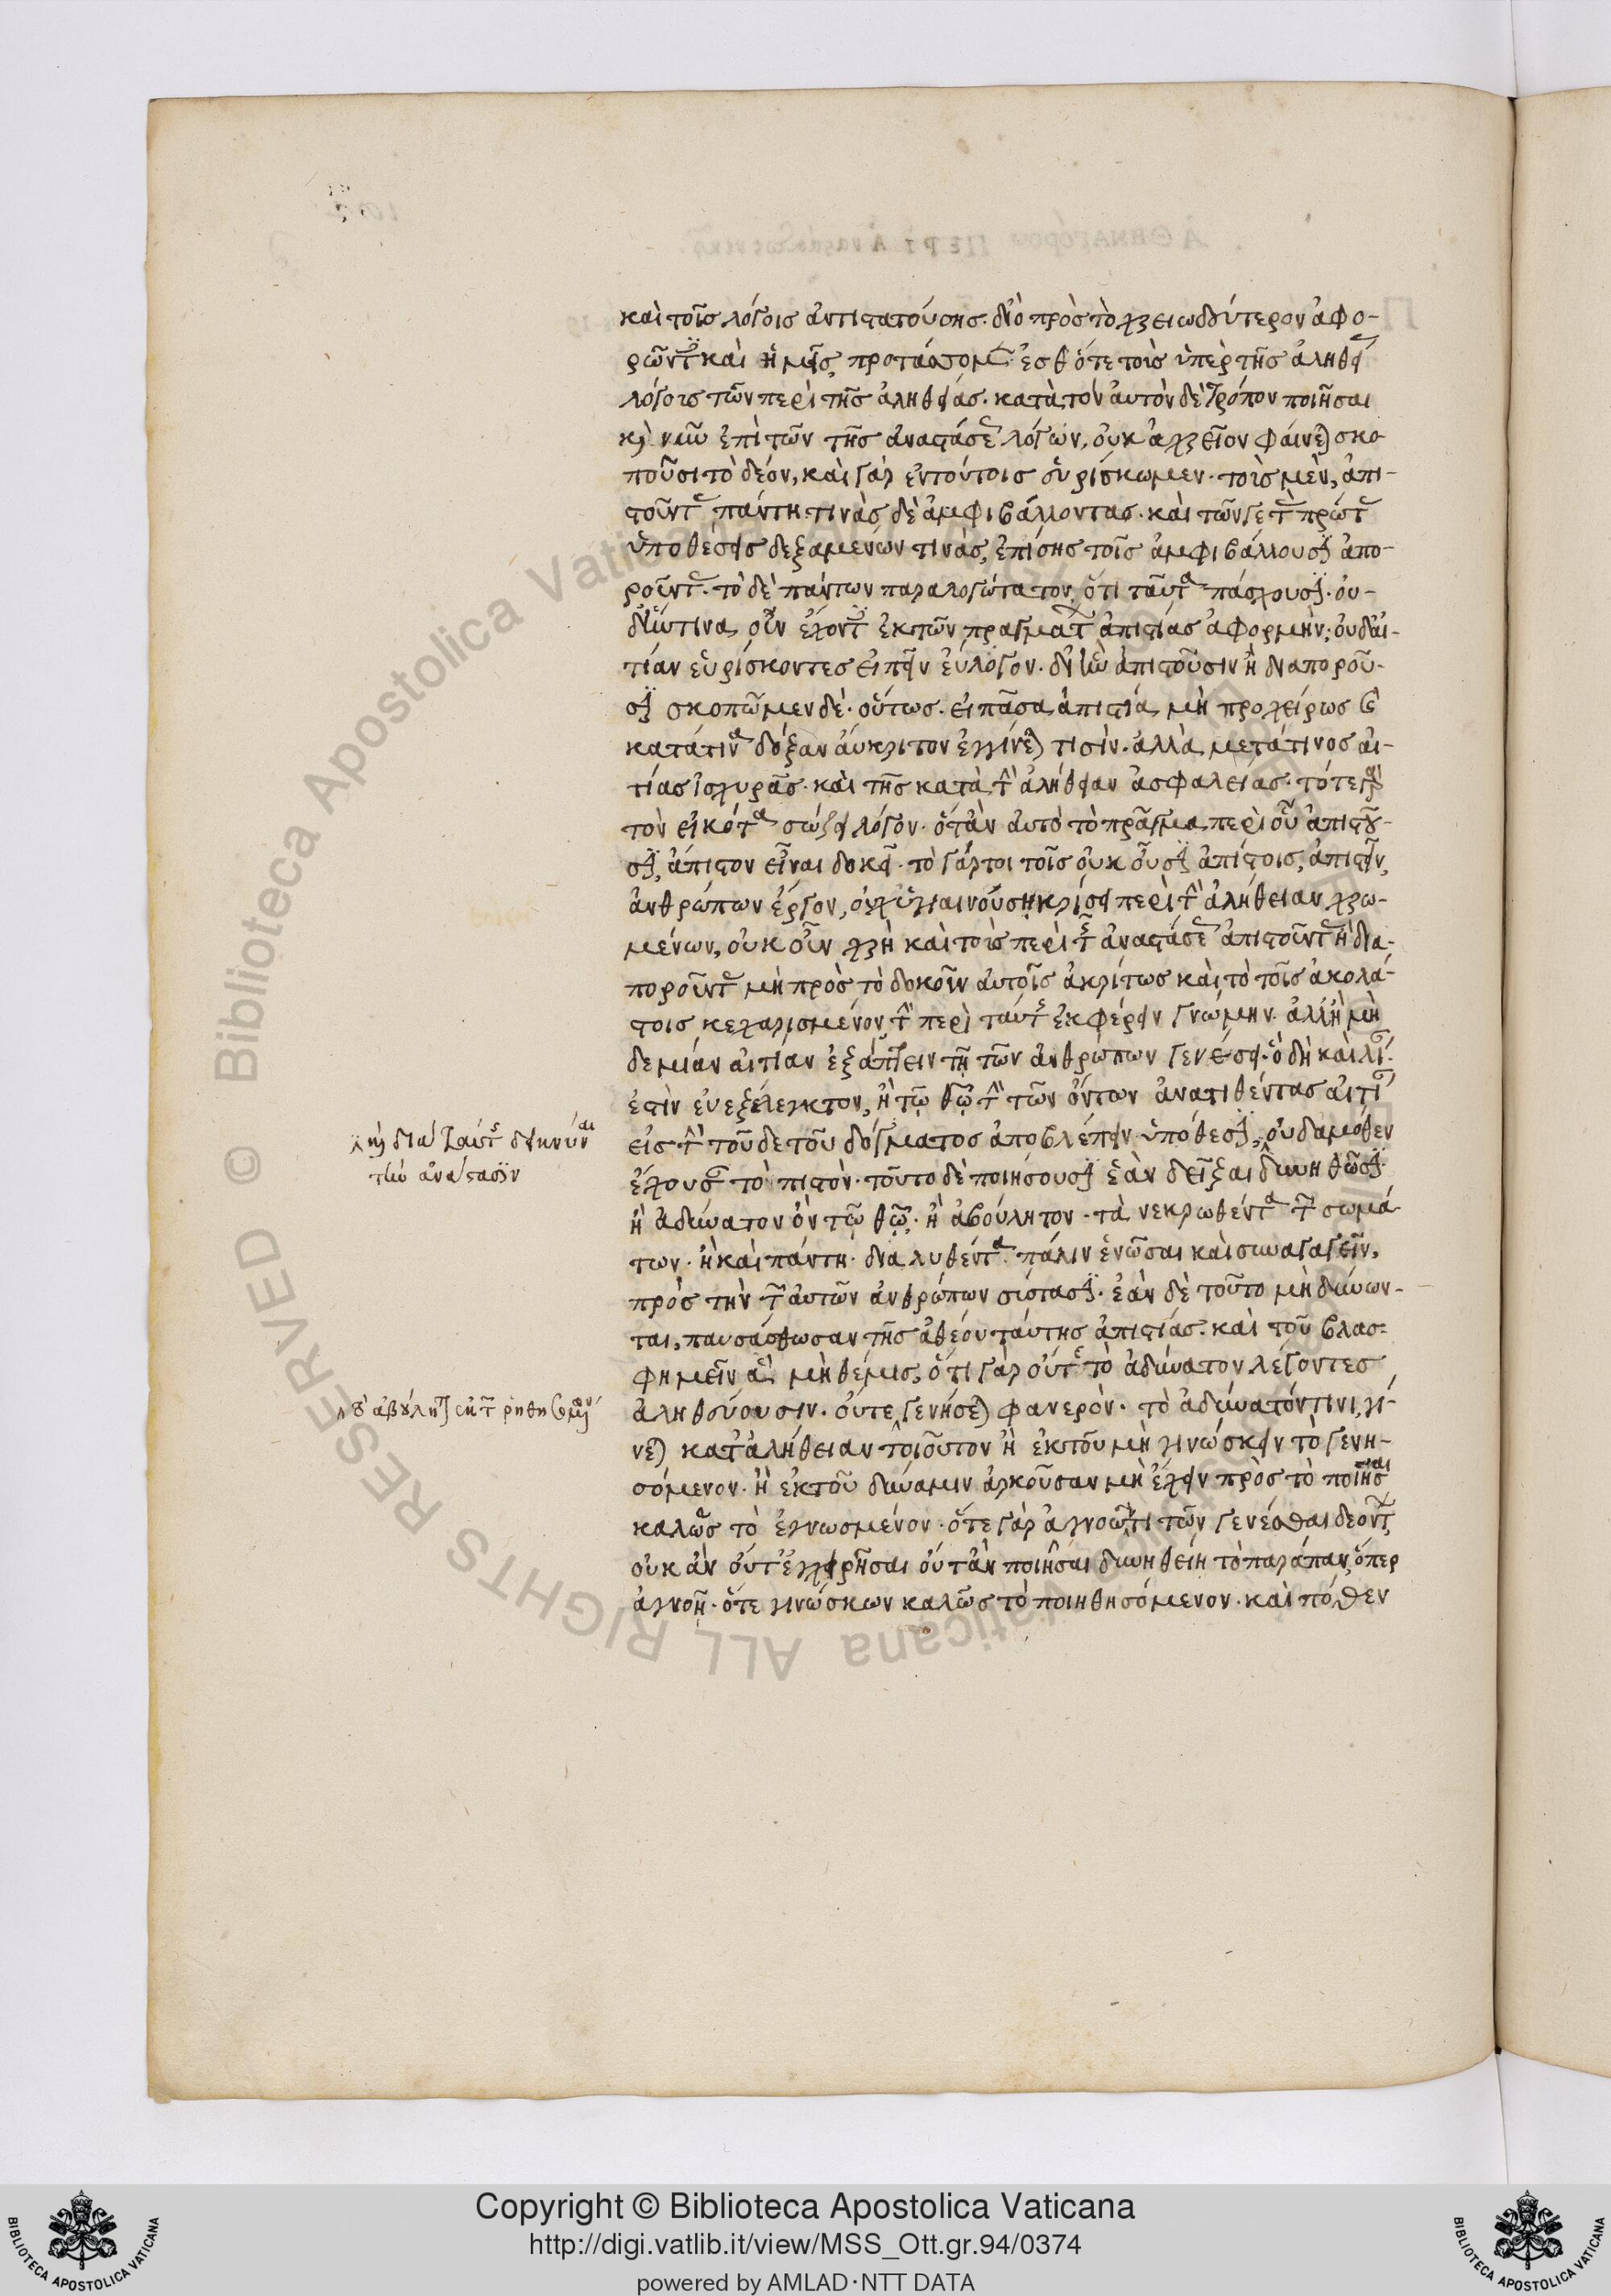 καὶ τοῖς λόγοις ἀντιστατούσης. διὸ πρὸς τὸ χρειωδέστερον ἀφο-
ρῶντες καὶ ἡμεῖς, προτάσσομεν ἔσθ' ὅτε τοὺς ὑπὲρ τῆς ἀληθείας
λόγους τῶν περὶ τῆς ἀληθείας. κατὰ τὸν αὐτὸν δὲ τρόπον ποιῆσαι
καὶ νῦν ἐπὶ τῶν τῆς ἀναστάσεως λόγων, οὐκ ἀχρεῖον φαίνεται σκο-
ποῦσι τὸ δέον, καὶ γὰρ ἐν τούτοις εὑρίσκωμεν. τοὺς μὲν, ἀπι-
στοῦντας πάντη. τινὰς δὲ ἀμφιβάλλοντας. καὶ τῶν γε τὰς πρώτας
ὑποθέσεις δεξαμένων τινὰς, ἐπίσης τοῖς ἀμφιβάλλουσιν ἀπο-
ροῦντας. τὸ δὲ πάντων παραλογώτατον, ὅτι ταῦτα πάσχουσιν. οὐ-
δ' ἥντινα οὖν ἔχοντες ἐκ τῶν πραγμάτων ἀπιστίας ἀφορμὴν; οὐδ' αἰ-
τίαν εὑρίσκοντες εἰπεῖν εὔλογον. δι' ἣν ἀπιστοῦσιν ἢ διαποροῦ-
σιν σκοπῶμεν δὲ. οὕτως. εἰ πᾶσα ἀπιστία μὴ προχείρως καὶ
κατά τινα δόξαν ἄκριτον ἐγγίνεται τισίν. ἀλλὰ μετά τινος αἰ-
τίας ἰσχυρᾶς. καὶ τῆς κατὰ τὴν ἀλήθειαν ἀσφαλείας. τότε γὰρ
τὸν εἰκότα σώζει λόγον. ὅταν αὐτὸ τὸ πρᾶγμα περὶ οὗ ἀπιστοῦ-
σιν, ἄπιστον εἶναι δοκεῖ. τὸ γάρ τοι τοῖς οὐκ οὖσιν ἀπίστοις, ἀπιστεῖν,
ἀνθρώπων ἔργον, οὐχ ὑγιαινούσῃ κρίσει περὶ τὴν ἀλήθειαν χρω-
μένων, οὐκ οὖν χρὴ καὶ τοὺς περὶ τῆς ἀναστάσεως ἀπιστοῦντας ἢ δια-
ποροῦντας μὴ πρὸς τὸ δοκοῦν αὐτοῖς ἀκρίτως καὶ τὸ τοῖς ἀκολά-
στοις κεχαρισμένον, τὴν περὶ ταύτης ἐκφέρειν γνώμην. ἀλλ' ἢ μη-
δεμίαν αἰτίαν ἐξάπτειν τῇ τῶν ἀνθρώπων γενέσει.
ἐστὶν εὐεξέλεγκτον, ἢ τῷ θεῷ τὴν τῶν ὄντων ἀνατιθέντας αἰτίαν
εἰς τὴν τοῦδε τοῦ δόγματος ἀποβλέπειν ὑπόθεσιν, οὐδαμόθεν
ἔχουσαν τὸ πιστόν. τοῦτο δὲ ποιήσουσιν ἐὰν δεῖξαι δυνηθῶσιν
ἢ ἀδύνατον ὂν τῷ θεῷ. ἢ ἀβούλητον. τὰ νεκρωθέντα τῶν σωμά-
των. ἢ καὶ πάντη. διαλυθέντα πάλιν ἑνῶσαι καὶ συναγαγεῖν,
πρὸς τὴν τῶν αὐτῶν ἀνθρώπων σύστασιν. ἐὰν δὲ τοῦτο μὴ δύνων-
ται, παυσάσθωσαν τῆς ἀθέου ταύτης ἀπιστίας. καὶ τοῦ βλασ-
φημεῖν ἃ μὴ θέμις, ὅτι γὰρ οὔτε τὸ ἀδύνατον λέγοντες
ἀληθεύουσιν. οὔτε γενήσεται φανερὸν. τὸ ἀδύνατόν τινι, γί-
νεται κατ' ἀλήθειαν τοιοῦτον ἢ ἐκ τοῦ μὴ γινώσκειν τὸ γενη-
σόμενον. ἢ ἐκ τοῦ δύναμιν ἀρκοῦσαν μὴ ἔχειν πρὸς τὸ ποιῆσαι
καλῶς τὸ ἐγνωσμένον. ὅτε γὰρ ἀγνοῶν τι τῶν γενέσθαι δεόντων
οὐκ ἂν οὔτ' ἐγχειρῆσαι οὔτ' ἂν ποιῆσαι δυνηθείη τὸ παράπαν, ὅπερ
ἀγνοεῖ. ὅτε γινώσκων καλῶς τὸ ποιηθησόμενον. καὶ πόθεν
τὴν ἀνάστασιν